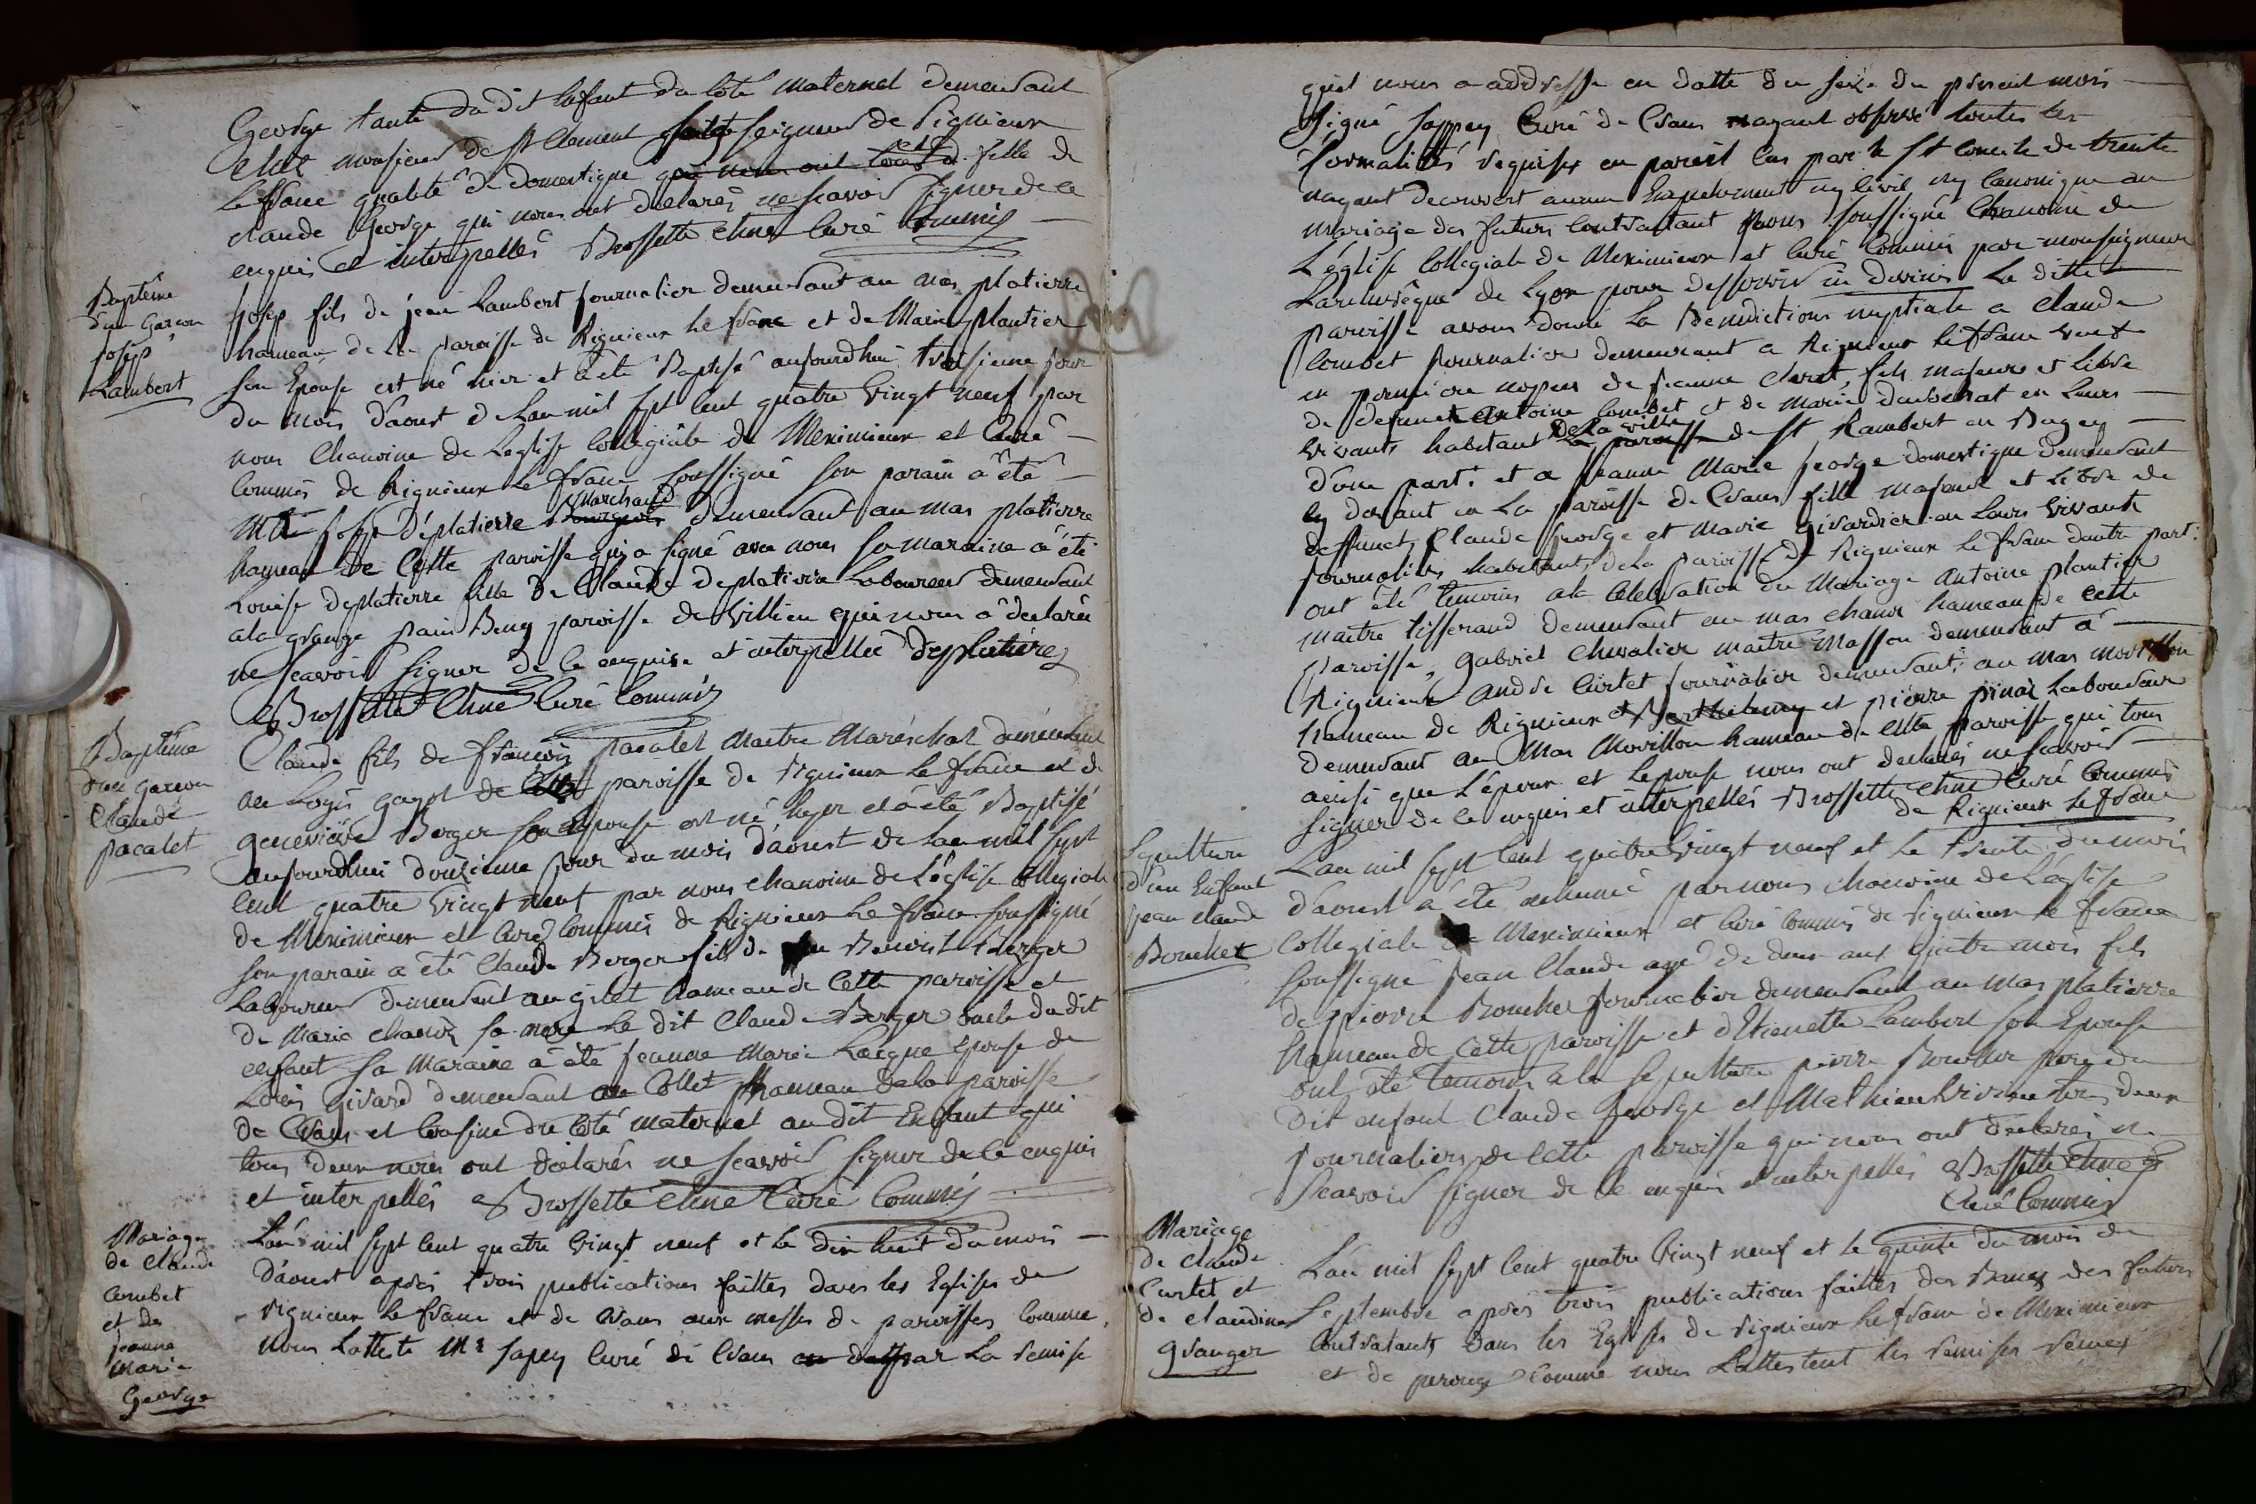 George tante du dit Enfant du côté maternel demeurant
chez monsieur de st Clement seigneur de Rignieux
Le franc qualité de domestique qui nous ont et fille de
claude George qui nous ont déclarés ne scavoir signer de ce
enquis et interpellés Brossette chne Curé Commis
Baptême
d'un Garcon
Josep
Lambert
Josep fils de jean Lambert journalier demeurant au mas platierre
hameau de la paroisse de Rignieux Le franc et de Marie plantier
son Epouse est né hier et a été Baptisé aujourdhui troisieme jour
du mois d'aoust de Lan mil sept cent quatre vingt neuf par
nous Chanoine de Leglise Collegiale de Meximieux et Curé
Commis de Rignieux Le franc soussigné son parain a été
Mtre Josep Déplatierre Bourgeois marchand demeurant au mas platierre
hameau de Cette paroisse qui a signé avec nous sa maraine a été
Louise deplatierre fille de Claude deplatierre Laboureur demeurant
ala grange pain Beny paroisse de Villieu qui nous a declarée
ne scavoir signer de ce enquise et interpellée Deplatiére
Brossette Chne Curé Commis
Baptême
d'un garcon
Claude
pacalet
Claude fils de francois pacalet Maitre Maréchal demeurant
au Logis gayot de Cette paroisse de rignieux Le franc et de
genevieve Berger son Epouse est né hyer et a été Baptisé
aujourdhui douzieme jour du mois d'aoust de Lan mil sept
cent quatre vingt neuf par nous chanoine de L'église Collegiale
de Meximieux et Curé Commis de Rignieux Le franc soussigné
son parain a été Claude Berger fils de feu Benoist Berger
Laboureur demeurant au gilet hameau de Cette paroisse et
de Marie chanoz sa mere Le dit Claude Berger oncle du dit
enfant sa Maraine a été jeanne Marie Lacque Epouse de
Louis givard demeurant au Collet hameau de la paroisse
de Crans et Cousine du Coté maternel au dit Enfant qui
tous deux nous ont déclarés ne scavoir signer de ce enquis
et interpellés Brossette Chne Curé Commis
Mariage
de claude
combet
et de
jeanne
marie
George
L'an mil sept cent quatre vingt neuf et le dix huit du mois
d'aoust après trois publications faittes dans les Eglises de
rignieux Le franc et de crans aux messes de paroisses Comme
nous Latteste Mr Sapey Curé de Crans en datte par La remise
quil nous a addressé en datte du seize du present mois
Signé Sappey Curé de Crans nayant observé toutes les
formalités requises en pareil Cas par le st concile de trente
nayant decouvert aucun Empechement ny Civil ny Canonique au
mariage des futurs Contractant Nous soussigné Chanoine de
L'église Collegiale de Meximieux et Curé Commis par monseigneur
Larchevêque de Lyon pour desservir in divinis La ditte
paroisse avons donné La Benedictions nuptiale a Claude
Combet Journalier demeurant a Rignieux Le franc veuf
en premiere nopces de jeanne Claret, fils majeur et Libre
de defunct Antoine Combet et de Marie daubenat en Leurs
vivants habitant La paroisse de La ville de St Rambert en Bugey
d'une part. et a Jeanne Marie George domestique demeurant
cy devant en La paroisse de Crans, fille majeure et Libre de
deffunct, Claude George et Marie Girardier en Leurs vivants
journaliers habitants de La paroisse de Rignieux Le franc dautre part.
ont été temoins ala Celebration du Mariage Antoine plantier
maitre tisserand demeurant au mas chanoz hameau de cette
paroisse, Gabriel Chevalier maitre Masson demeurant a
Rignieux André Curtet journalier demeurant au mas morillon
hameau de Rignieux et Barthelemy et pierre pinaz Laboureur
demeurant au Mas Morillon hameau de Cette paroisse qui tous
ainsi que L'époux et Lepouse nous ont declarés ne scavoir
signer de ce enquis et interpellés Brossette Chne Curé Commis
de Rignieux Le franc
Sepulture
d'un Enfant
jean claude
Bouchet
Lan mil sept Cent quatre vingt neuf et Le trente du mois
d'aoust a été inhumé par nous chanoine de L'église
Collegiale de Meximieux et Curé Commis de rignieux Le franc
soussigné jean Claude agé de deux ans quatre mois fils
de pierre Bouchet journalier demeurant au Mas platierre
hameau de Cette paroisse et d'Etiennette Lambert son Epouse
ont été temoins a la sepulture pierre Bouchet pere du
dit enfant Claude George et Mathieu tous deux
journaliers de Cette paroisse qui nous ont declarés ne
scavoir signer de ce enquis et interpellés Brossette Chne
Curé Commis
Mariage
de claude
Curtet et
de claudine
granger
L'an mil sept Cent quatre vingt neuf et le quinze du mois de
Septembre après trois publications faittes des Bancs des futurs
Contractants dans les Eglises de rignieux Le franc de Meximieux
et de perouge Comme nous L'attestent les remises